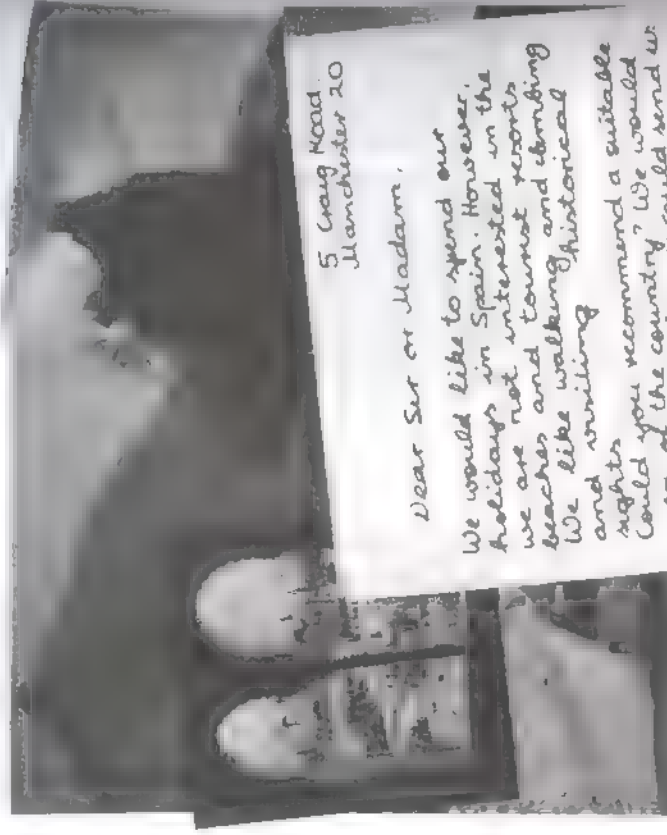 5 Craig Road.
Manchester 20
Dear Sir or Madam,
We would like to spend our
holidays in Spain. However,
we are not interested in the
beaches and tourist resorts
We like walking and climbing
and visiting historical
sights
Could you recommend a suitable
of the country? We would